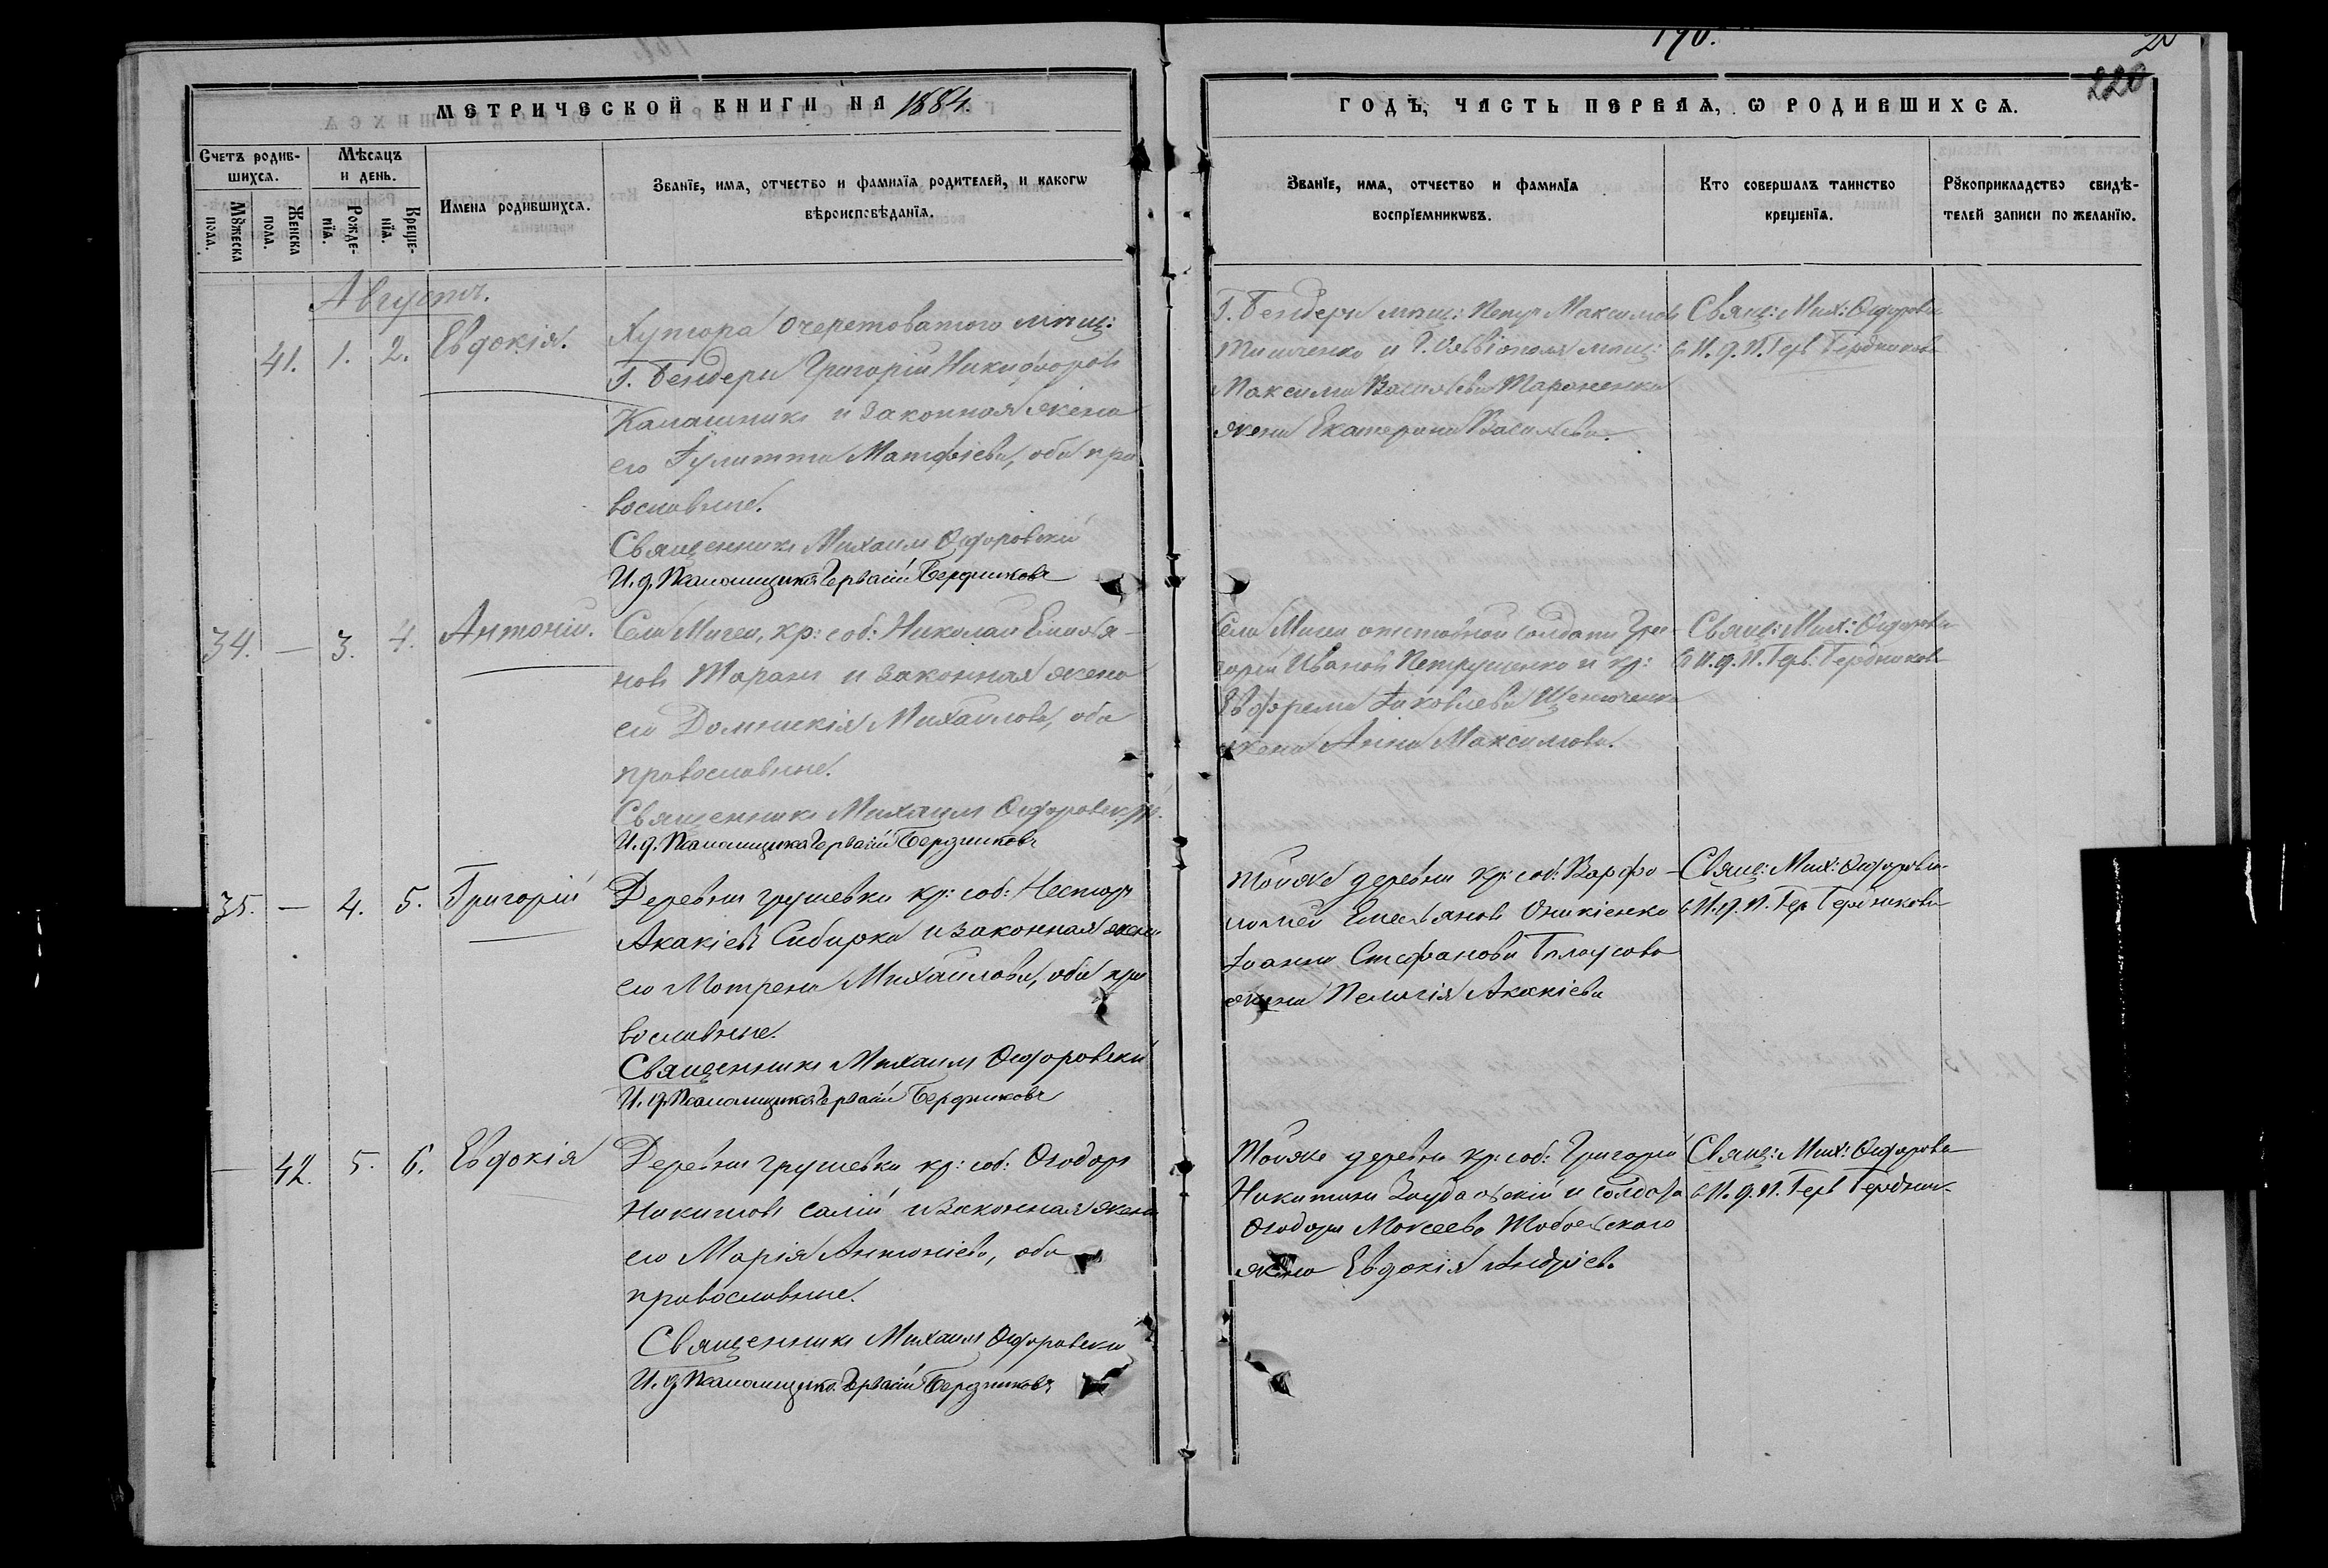 190.
220
МЕТРИЧЕСКОЙ КНИГИ НА 1884.
ГОДЪ, ЧАСТЬ ПЕРВАЯ, Ѡ РОДИВШИХСѦ.
Счетъ родив-
шихсѧ.
Мꙋжеска
пола.
Женска
пола.
Мѣсѧцъ
и день.
Рожде-
нїѧ.
Креще-
нїѧ.
Имена родившихсѧ.
Званїе, имѧ, отчество и фамилїѧ родителей, и какогѡ
вѣроисповѣданїѧ.
Званїе, имѧ, отчество и фамилїѧ
воспрїемникѡвъ.
Кто совершалъ таинство
крещенїѧ.
Рꙋкоприкладство свидѣ-
телей записи по желанїю.
Августъ.
41. 1. 2. Евдокія.
Хутора Очеретоватого мѣщ:
Г. Бендеры Григорій Никифоровъ
Калашникъ и законная жена
его Іулитта Матфіева, оба пра
вославные.
Священникъ Михаилъ Ѳедоровскій
И. д. Псаломщика Гервасій Бердниковъ
Г. Бендеры мѣщ: Петръ Максимовъ
Тимченко и Г. мѣщ:
Максима Васильева Тараненка
жена Екатерина Васильева.
Свящ: Мих: Ѳедоровск
и И. д. П. Герв Бердниковъ
34. — 3. 4. Антоній.
Села Мигеи, кр: соб: Николай Емилья-
новъ Таранъ и законная жена
его Домникія Михаилова, оба
православные.
Священникъ Михаилъ Ѳедоровскій.
И. д. Псаломщика Гервасій Бердниковъ
Села Мигеи отставной солдатъ Гри-
горій Ивановъ Петрушенко и кр:
Евфрема Іаковлева
жена Анна Максимова.
Свящ: Мих: Ѳедоровск
и И. д. П. Герв: Бердниковъ
35. — 4. 5. Григорій
Деревни Грушевки кр: соб: Несторъ
Акакіевъ Сибирка и законная жена
его Мотрена Михаилова, оба пра
вославные.
Священникъ Михаилъ Ѳедоровскій
И. д. Псаломщика Гервасій Бердниковъ
Тойже деревни кр: соб: Варфо-
ломей Емельяновъ Оникіенко
Іоанна Стефанова Білоусова
жена Пелагія Акакіева
Свящ: Мих: Ѳедоровск
и И. д. П. Герв Бердниковъ
— 42. 5. 6. Евдокія
Деревни Грушевки кр: соб: Ѳеодоръ
Никитовъ Салій и законная жена
его Марія Антоніева, оба
православные.
Священникъ Михаилъ Ѳедоровскій
И. д. Псаломщика Гервасій Бердниковъ
Тойже деревни кр: соб: Григорій
Никитинъ и солдата
Ѳеодора Моисеева Тобольского
жена Евдокія Андріев.
Свящ: Мих: Ѳедоровск
и И. д. П. Герв Бердник